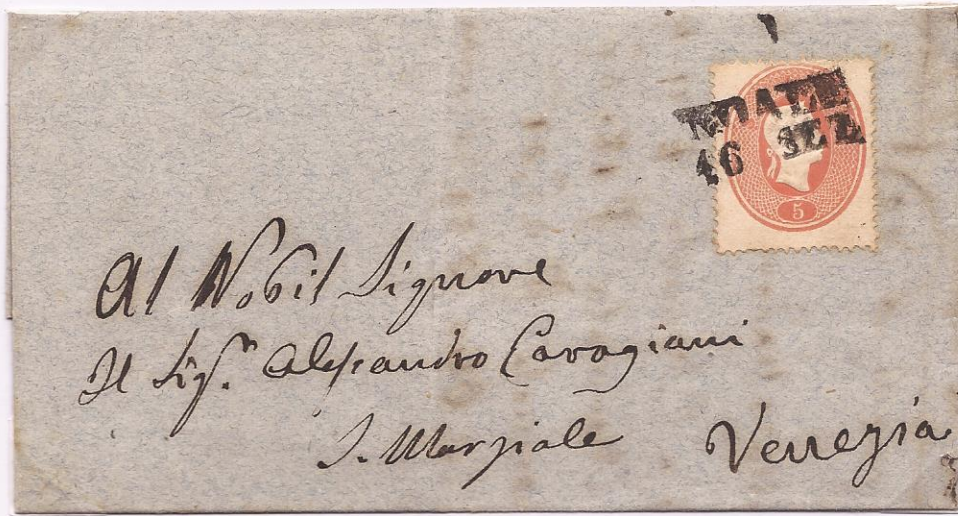 NOALE
16 SET
5
Al Nobil Signore
Il Sigr. Alessandro Cavagiani
S. Marziale Venezia